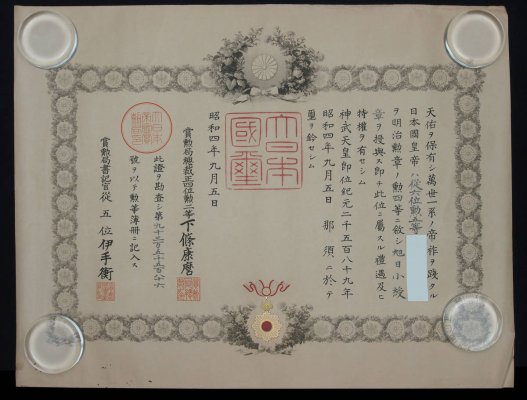 天佑ヲ保有シ萬世一系ノ帝祚ヲ踐タル
日本國皇帝ハ從六位勲五等
ヲ明治勲章ノ勲四等ニ敘シ旭日小綬
章ヲ授與ス即チ此位ニ屬スル禮遇及ヒ
特權ヲ有セシム
神武天皇即位紀元二千五百八十九年
昭和四年九月五日那須ニ於テ
璽ヲ鈐セシム
大日本國璽
昭和四年九月五日
賞勲局總裁正四位勲二等下條康麿
此證ヲ勘査シ第九十三万五千五百八十六
號ヲ以テ勲等簿冊ニ記入ス
賞勲局書記官從五位伊手衡